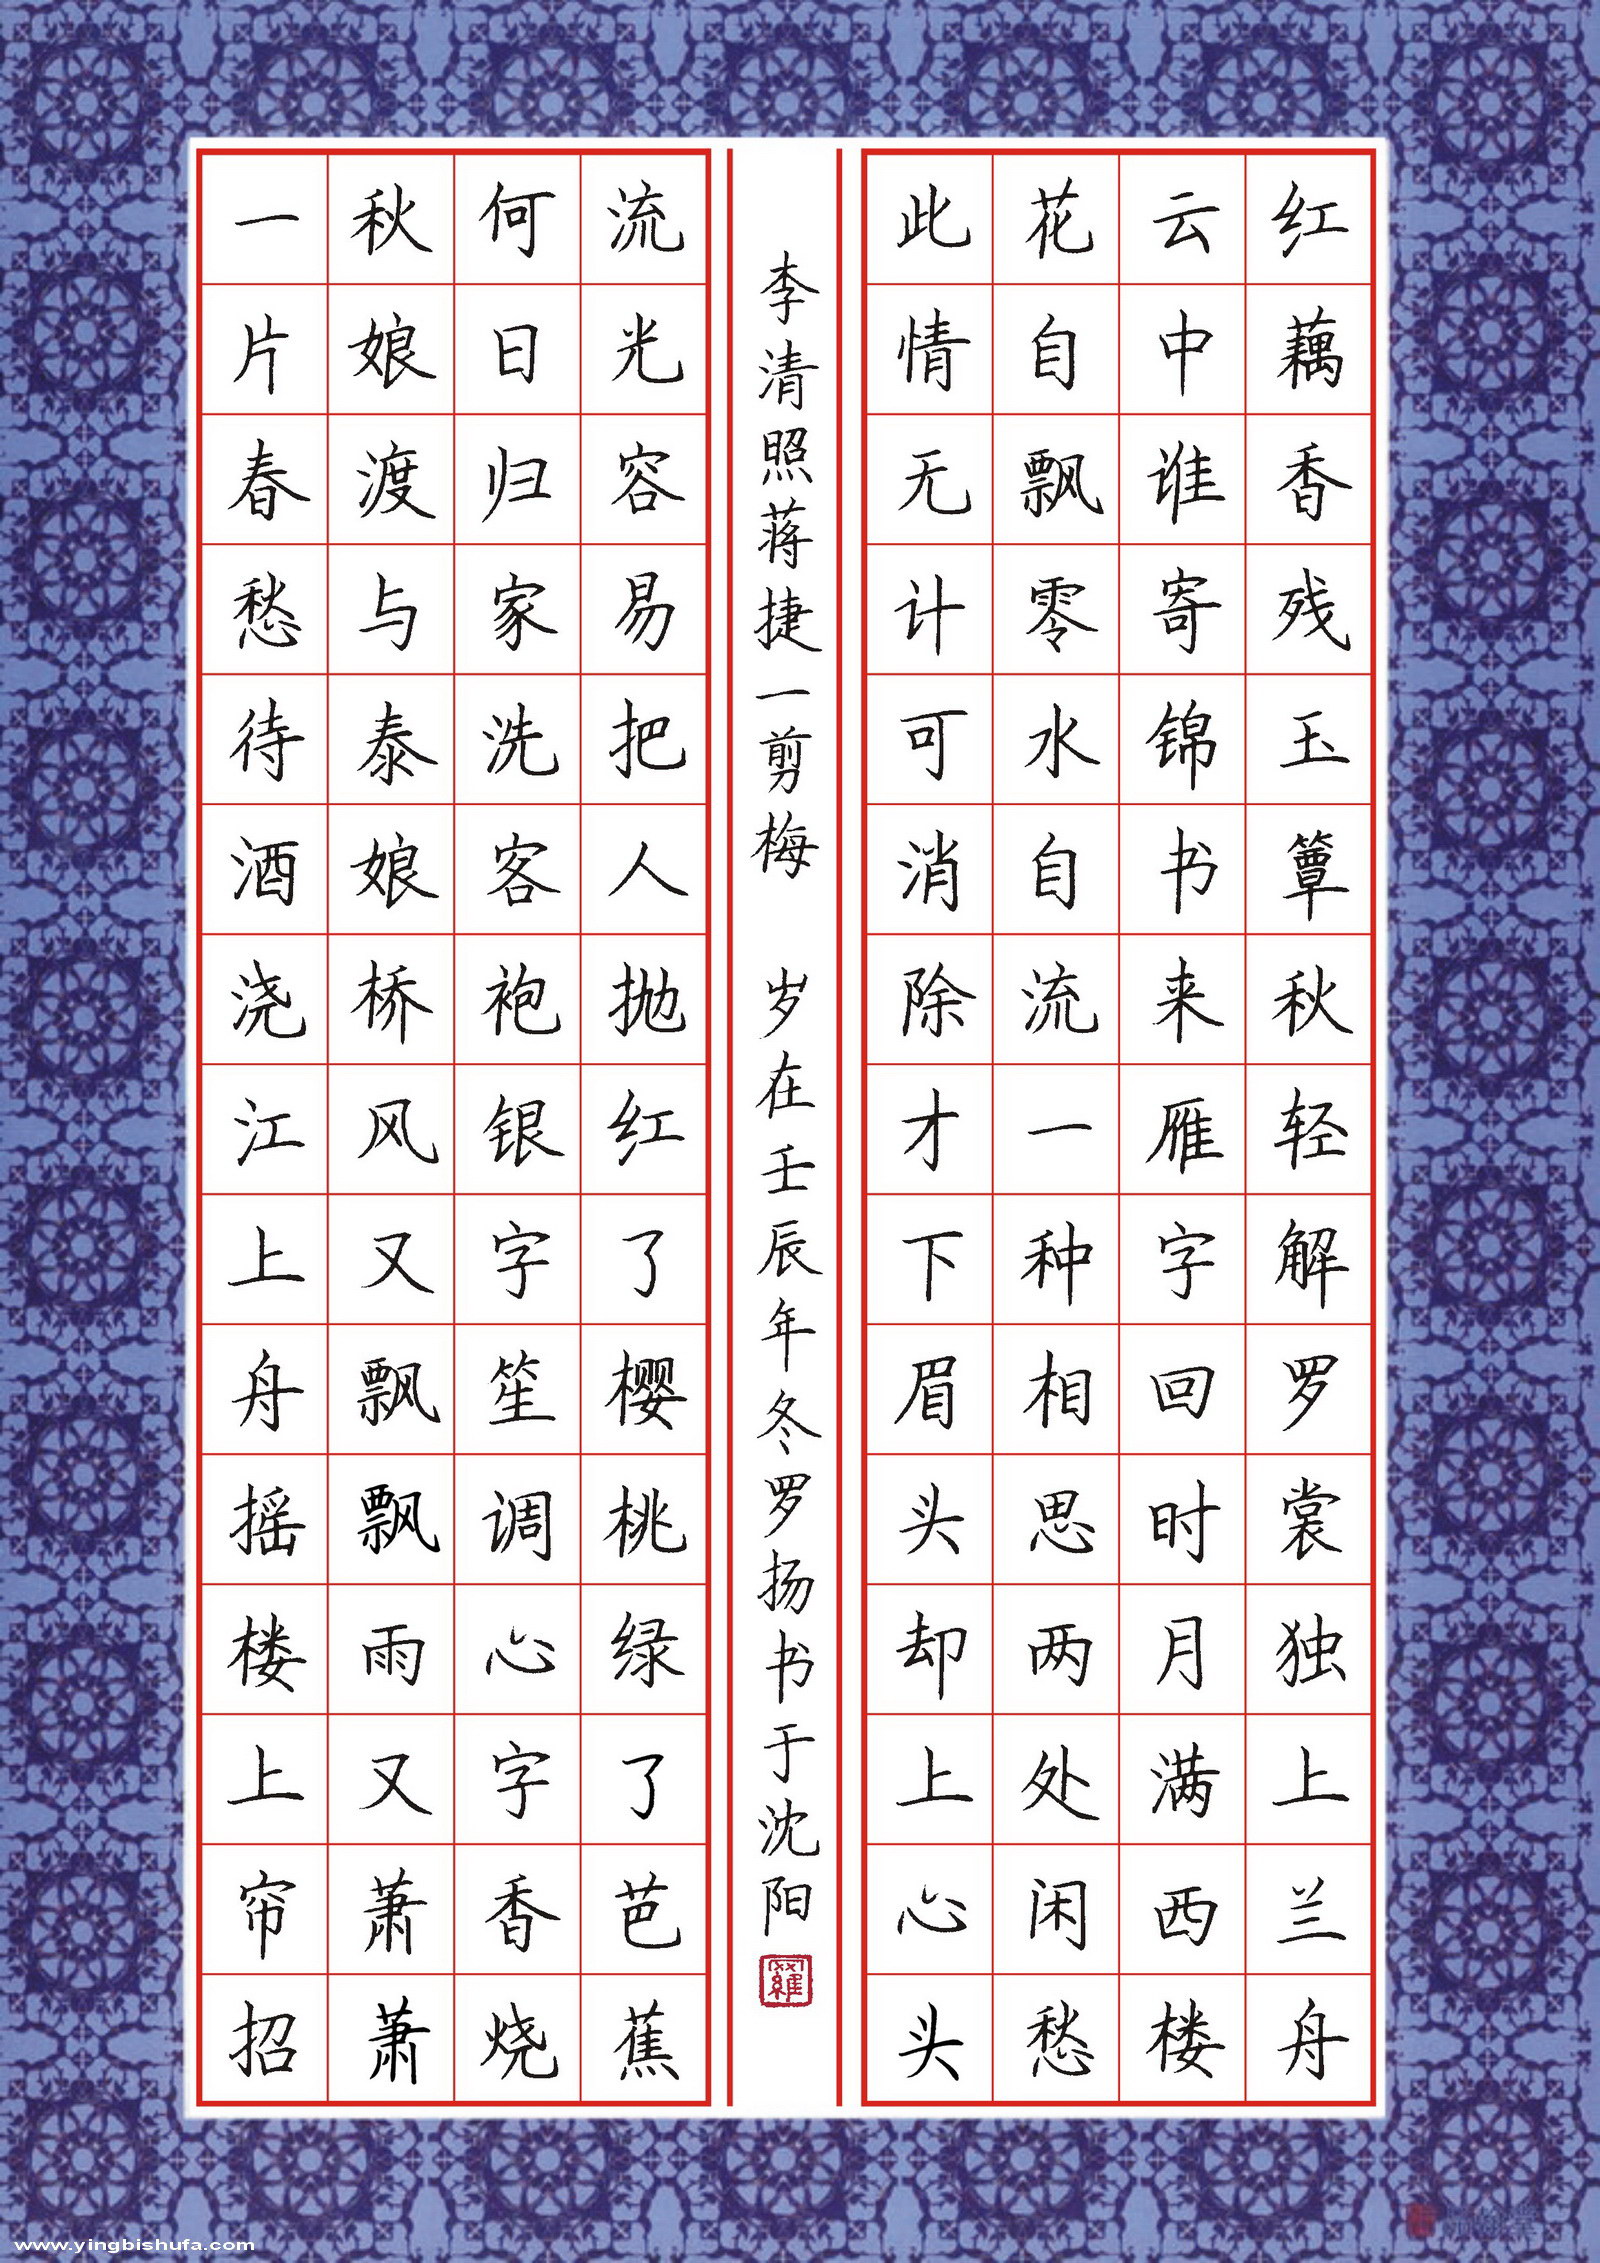 红藕香残玉簟秋轻解罗裳独上兰舟
云中谁寄锦书来雁字回时月满西楼
花自飘零水自流一种相思两处闲愁
此情无计可消除才下眉头却上心头
一片春愁待酒浇江上舟摇楼上帘招
秋娘渡与泰娘桥风又飘飘雨又萧萧
何日归家洗客袍银字笙调心字香烧
流光容易把人抛红了樱桃绿了芭蕉
李清照蒋捷一剪梅 岁在壬辰年冬罗扬书于沈阳
羅
www.yingbishufa.com